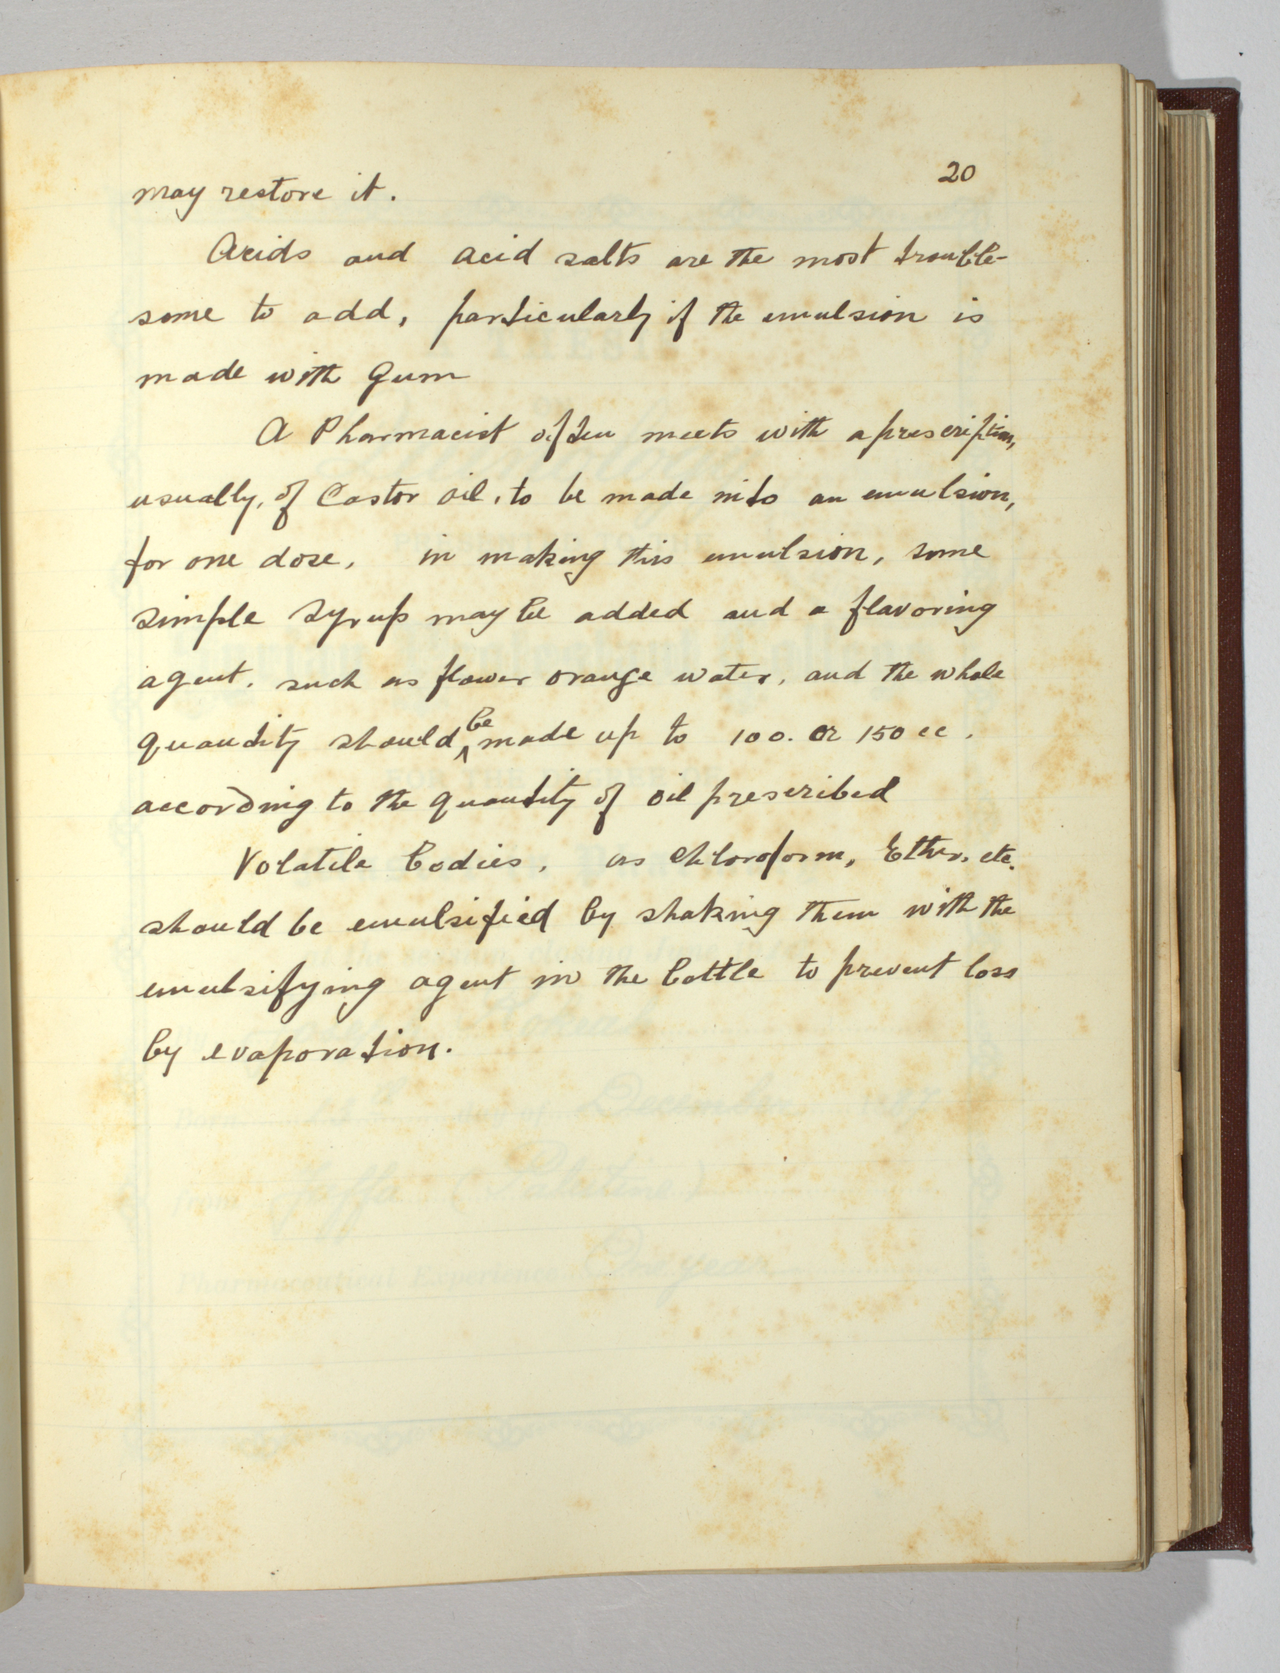 20
may restore it.
Acids and acid salts are the most trouble-
some to add, particularly if the emulsion is
made with Gum
A Pharmacist often meets with a prescription,
usually, of Castor oil, to be made into an emulsion,
for one dose, in making this emulsion, some
simple syrup may be added and a flavoring
agent, such as flower orange water, and the whole
quantity should be made up to 100. or 150 cc,
according to the quantity of oil prescribed
Volatile bodies, as chloroform, Ether, etc.
should be emulsified by shaking them with the
emulsifying agent in the bottle to prevent loss
by evaporation.
December
Jaffa (Palestine)
Pharmaceutical Experience One year